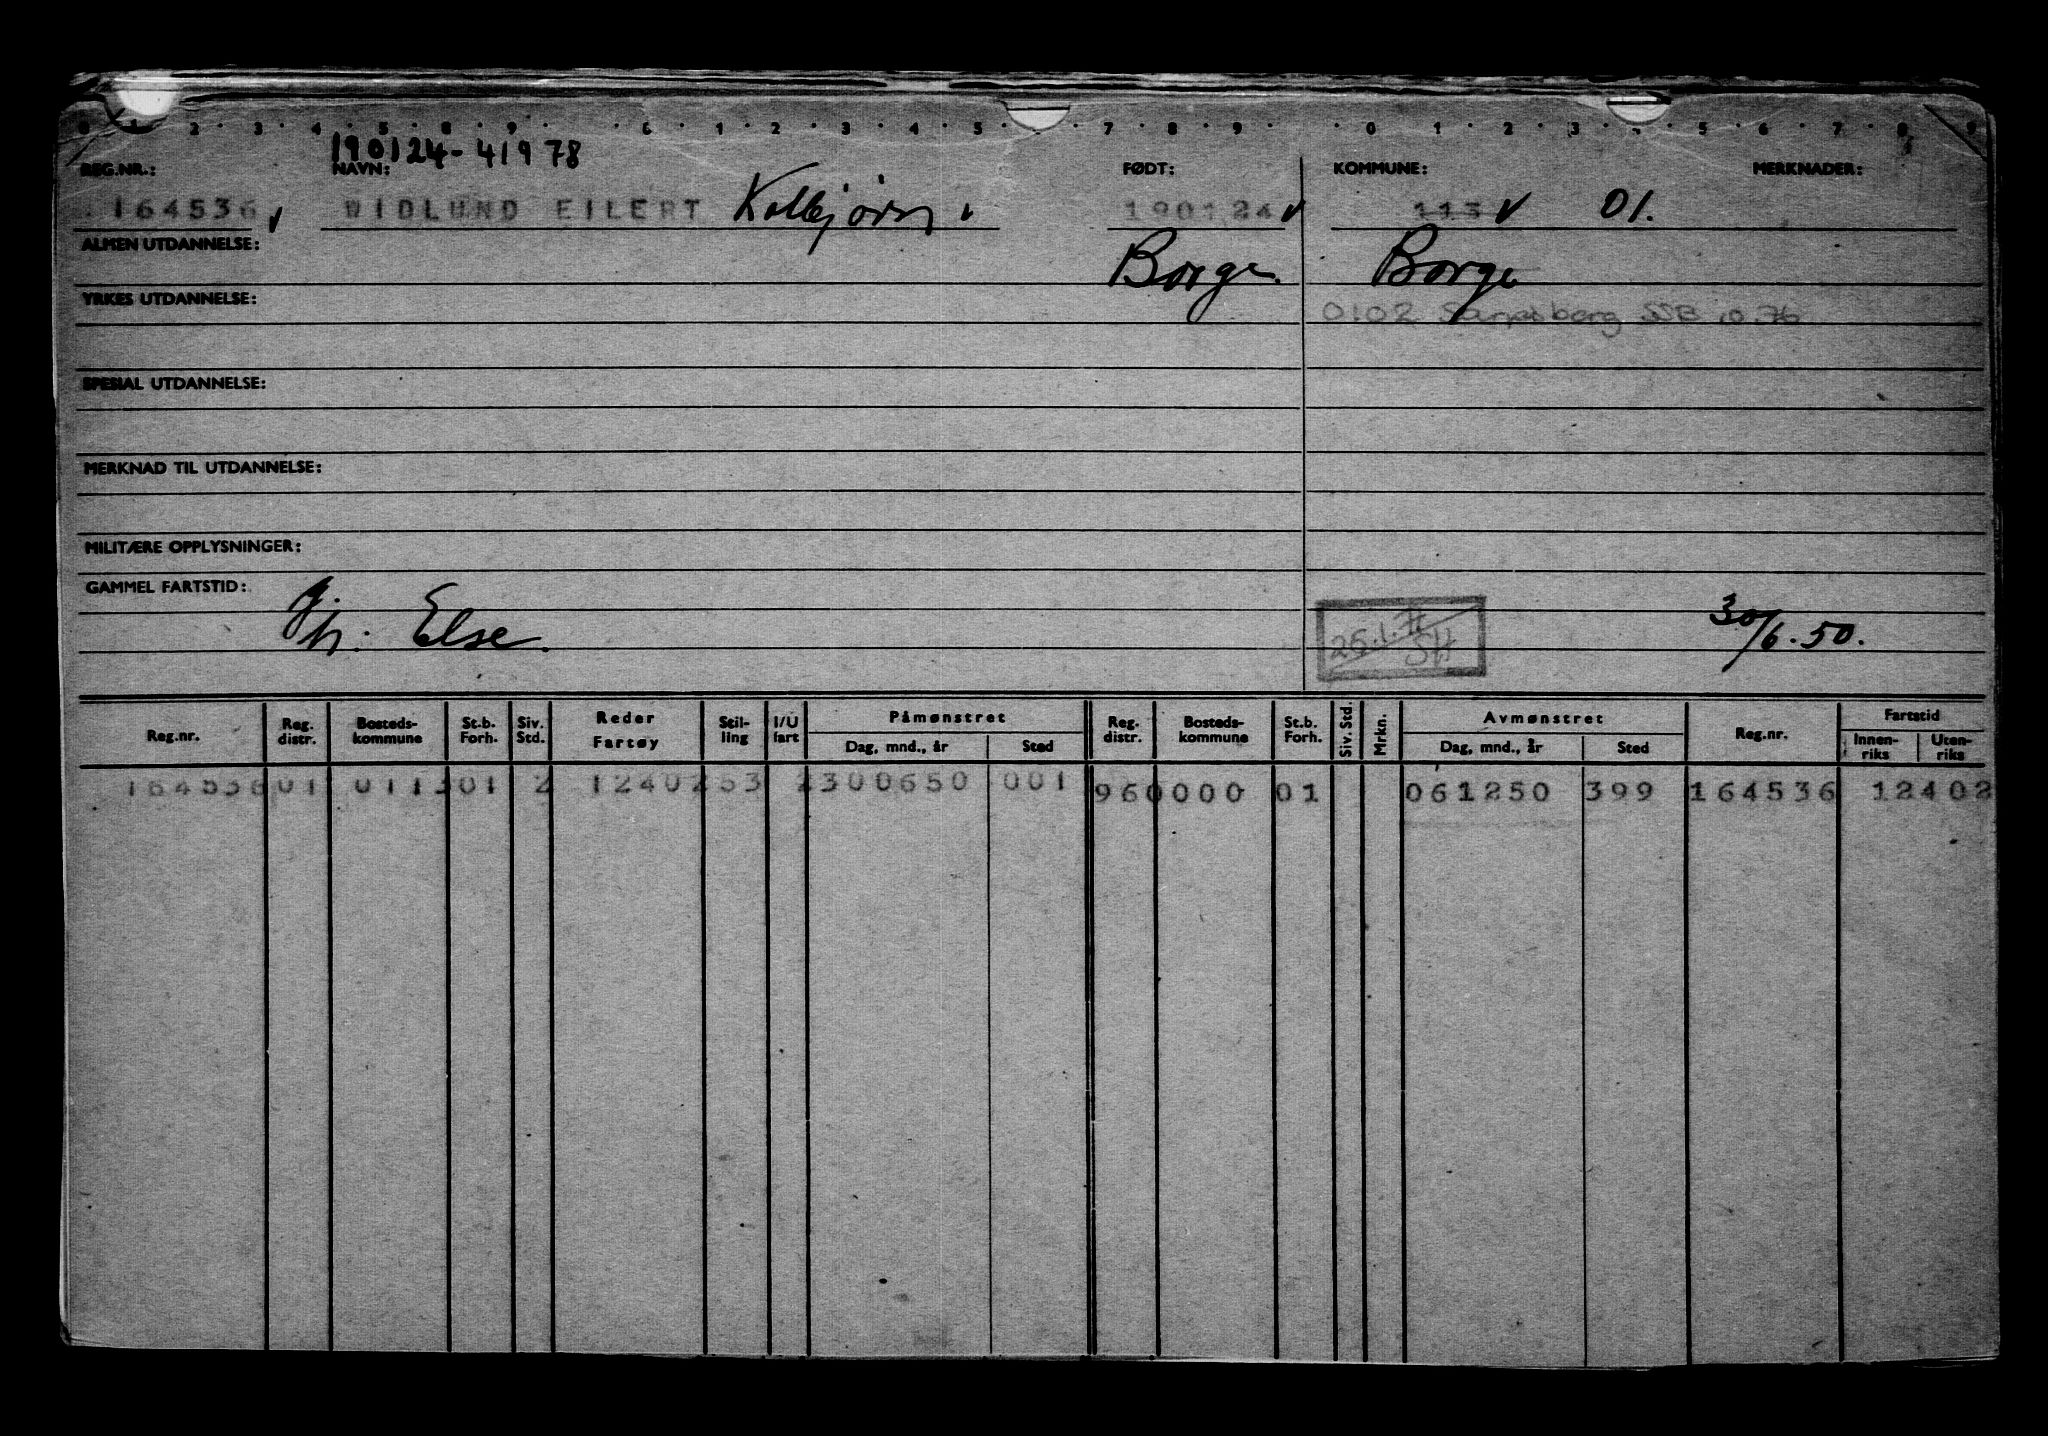 0 1 2 3 4 5 8 9 6 1 2 3 4 5 7 8 9 0 1 2 3 4 5 6 7 8 9
190124-41978
REG.NR.: NAVN: FØDT: KOMMUNE: MERKNADER:
164536 WIDLUND EILERT Kolbjørn 190124 113 01.
ALMEN UTDANNELSE: Borge. Borge
YRKES UTDANNELSE: 0102 Sarpsborg SSB 10.76
SPESIAL UTDANNELSE:
MERKNAD TIL UTDANNELSE:
MILITÆRE OPPLYSNINGER:
GAMMEL FARTSTID:
gj. h. Else. 26.1.71 SH 30/6.50.
Reg.nr. Reg. distr. Bosteds-kommune St.b. Forh. Siv. Std. Reder Fartøy Stil-ling I/U fart Påmønstret Dag, mnd., år Sted Reg. distr. Bosteds-kommune St.b. Forh. Siv. Std. Mrkn. Avmønstret Dag, mnd., år Sted Reg.nr. Fartstid Innen-riks Uten-riks
164536 01 0113 01 2 12402 53 2 300650 001 960000 01 061250 399 164536 12402